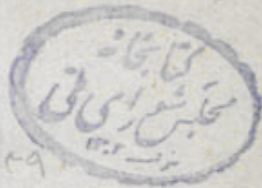 کتابخانه
مجلس شورای ملی
۴۹